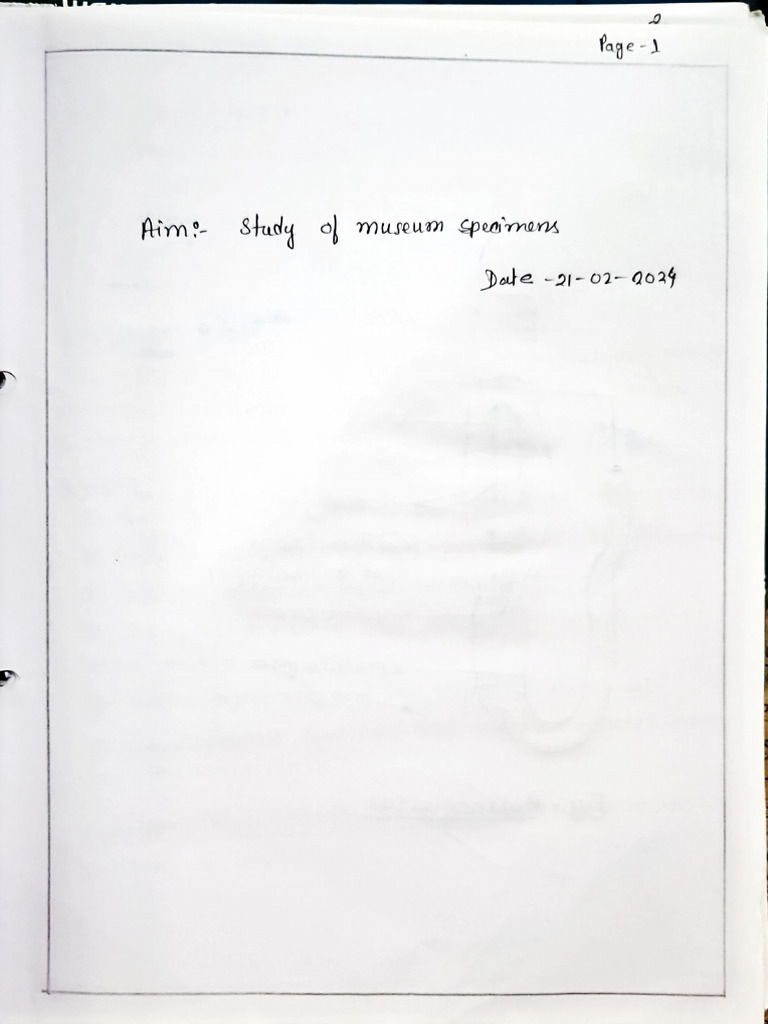 Page - 1
Aim:- Study of museum specimens
Date - 21-02-2024